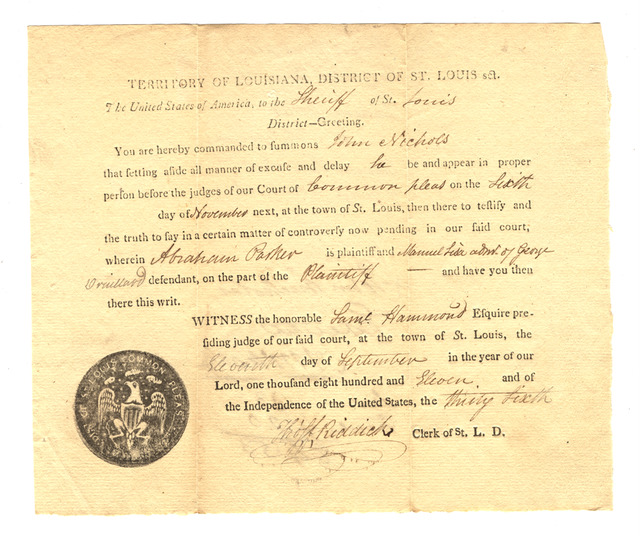 TERRITORY OF LOUISIANA, DISTRICT OF ST. LOUIS sct.
The United States of America, to the Sheriff of St. Louis
District—Greeting.
You are hereby commanded to summons John Nichols
that setting aside all manner of excuse and delay he be and appear in proper
person before the judges of our Court of Common pleas on the Sixth
day of November next, at the town of St. Louis, then there to testify and
the truth to say in a certain matter of controversy now pending in our said court,
wherein Abraham Parker is plaintiff and Manuel Lisa admr. of George
Druillard defendant, on the part of the Plaintiff — and have you then
there this writ.
WITNESS the honorable Saml. Hammond Esquire pre-
siding judge of our said court, at the town of St. Louis, the
Eleventh day of September in the year of our
Lord, one thousand eight hundred and Eleven and of
the Independence of the United States, the thirty Sixth
Thos. F. Riddick Clerk of St. L. D.
ST LOUIS COMMON PLEAS